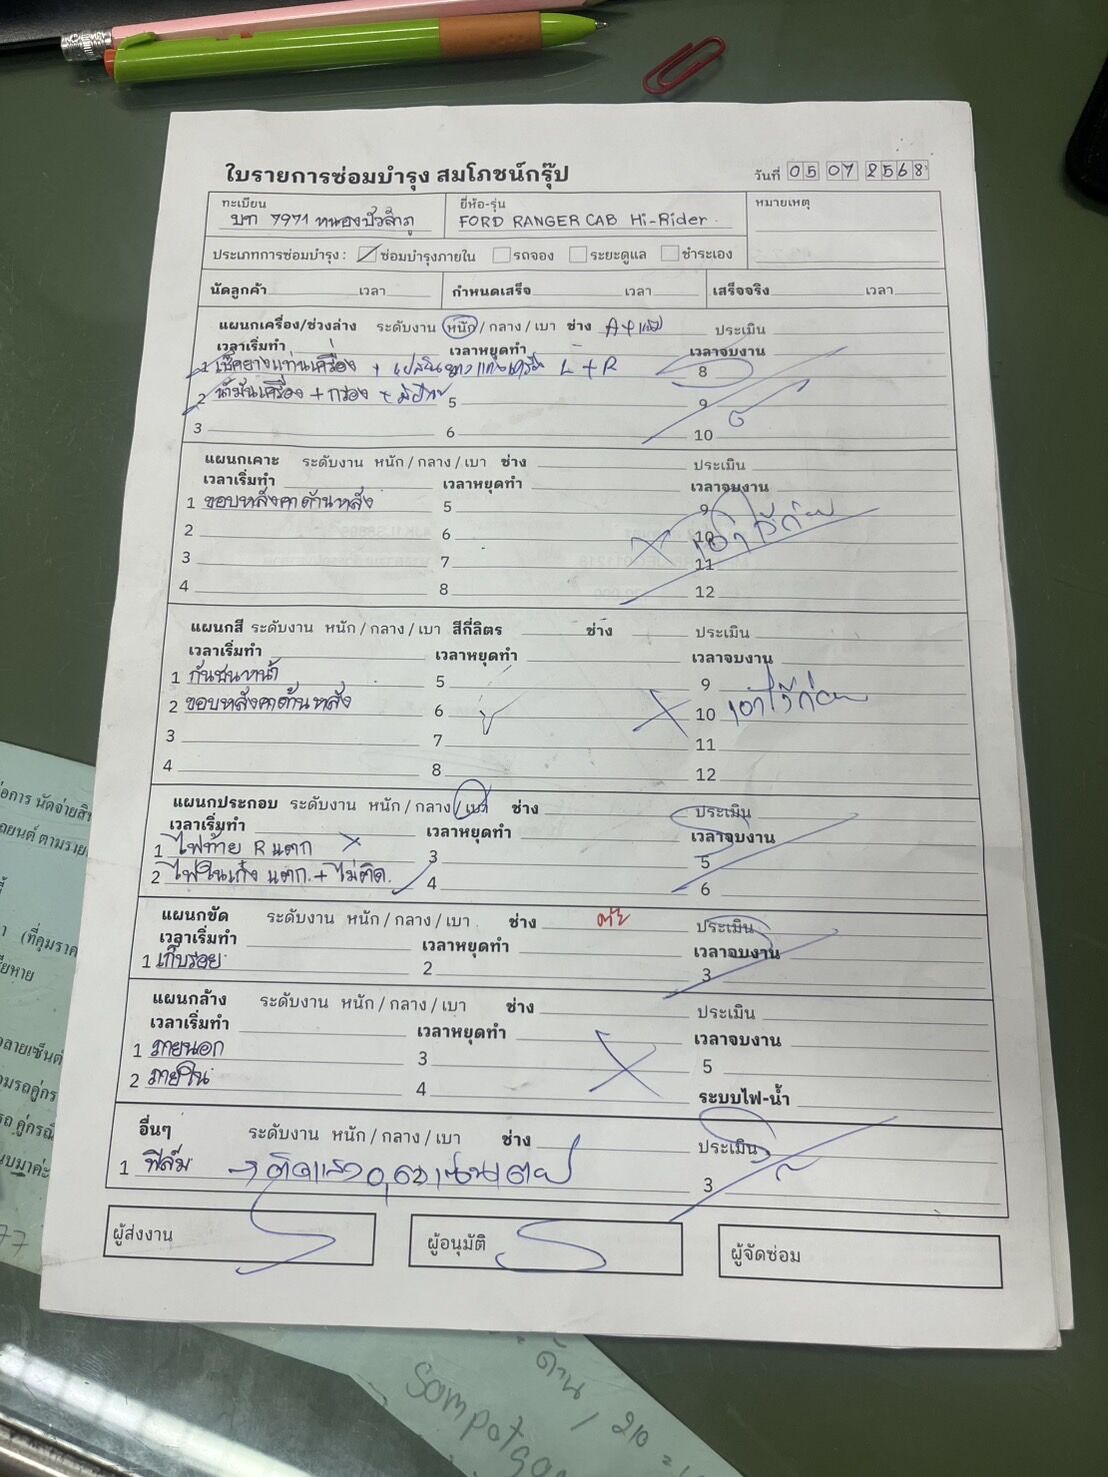 ใบรายการซ่อมบำรุง สมโภชน์กรุ๊ป
วันที่ 05 07 2568
ทะเบียน ยี่ห้อ-รุ่น หมายเหตุ
บท 7971 หนองบัวลำภู FORD RANGER CAB Hi-Rider
ประเภทการซ่อมบำรุง : ซ่อมบำรุงภายใน รถจอง ระยะดูแล ชำระเอง
นัดลูกค้า เวลา กำหนดเสร็จ เวลา เสร็จจริง เวลา
แผนกเครื่อง/ช่วงล่าง ระดับงาน หนัก / กลาง / เบา ช่าง ประเมิน
เวลาเริ่มทำ เวลาหยุดทำ เวลาจบงาน
1 เช็คยางแท่นเครื่อง + L + R 8
2 น้ำมันเครื่อง + กรอง + 5 9
3 6 10
แผนกเคาะ ระดับงาน หนัก / กลาง / เบา ช่าง ประเมิน
เวลาเริ่มทำ เวลาหยุดทำ เวลาจบงาน
1 ขอบหลังคาด้านหลัง 5 9
2 6 10 เอาไว้ก่อน
3 7 11
4 8 12
แผนกสี ระดับงาน หนัก / กลาง / เบา สีกี่ลิตร ช่าง ประเมิน
เวลาเริ่มทำ เวลาหยุดทำ เวลาจบงาน
1 กันชนหน้า 5 9
2 ขอบหลังคาด้านหลัง 6 10 เอาไว้ก่อน
3 7 11
4 8 12
แผนกประกอบ ระดับงาน หนัก / กลาง / เบา ช่าง ประเมิน
เวลาเริ่มทำ เวลาหยุดทำ เวลาจบงาน
1 ไฟท้าย R แตก 3 5
2 ไฟในเก๋ง แตก + ไม่ติด. 4 6
แผนกขัด ระดับงาน หนัก / กลาง / เบา ช่าง ประเมิน
เวลาเริ่มทำ เวลาหยุดทำ เวลาจบงาน
1 เก็บรอย 2 3
แผนกล้าง ระดับงาน หนัก / กลาง / เบา ช่าง ประเมิน
เวลาเริ่มทำ เวลาหยุดทำ เวลาจบงาน
1 ภายนอก 3 5
2 ภายใน 4 ระบบไฟ-น้ำ
อื่นๆ ระดับงาน หนัก / กลาง / เบา ช่าง ประเมิน
1 ฟิล์ม 3
ผู้ส่งงาน ผู้อนุมัติ ผู้จัดซ่อม